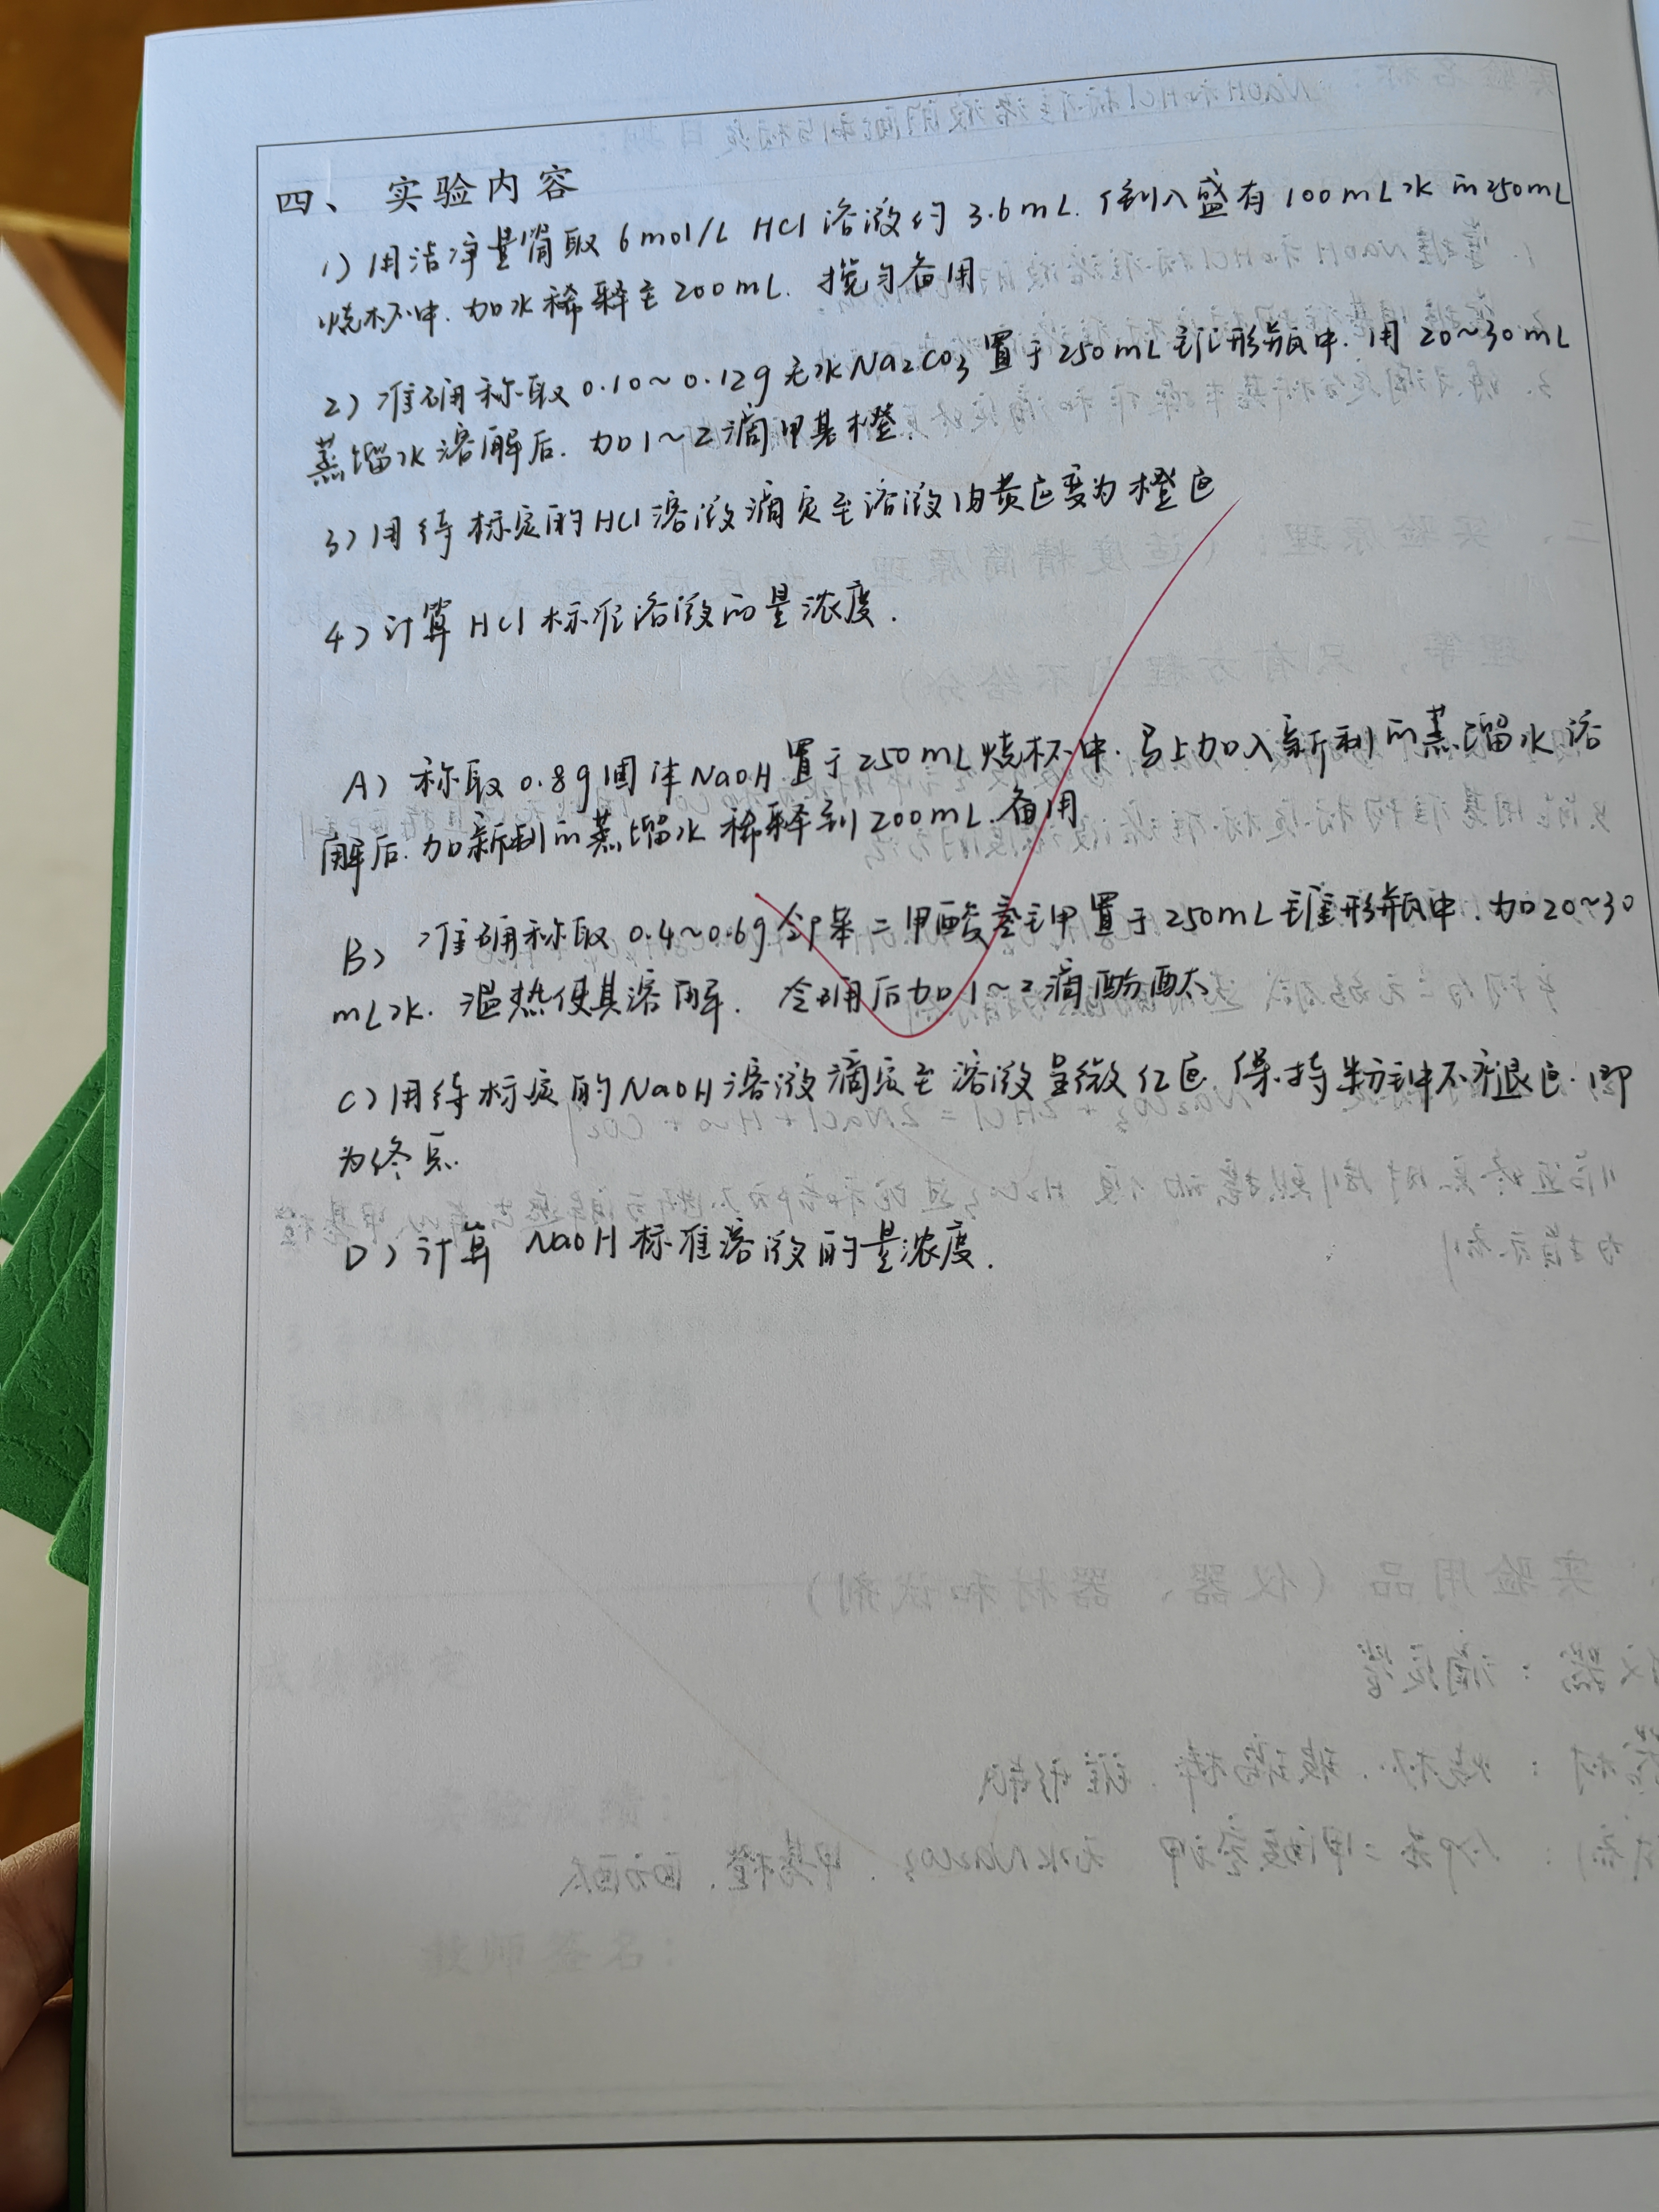 四、实验内容
1) 用洁净量筒取 6mol/L HCl 溶液约 3.6mL. 倒入盛有 100mL水 的250mL
烧杯中. 加水稀释至 200mL. 搅匀备用
2) 准确称取 0.10~0.12g 无水Na2CO3 置于250mL 锥形瓶中. 用 20~30mL
蒸馏水溶解后. 加1~2滴甲基橙
3) 用待标定的HCl溶液滴定至溶液由黄色变为橙色
4) 计算 HCl 标准溶液的量浓度.
A) 称取 0.8g固体NaOH置于250mL烧杯中. 马上加入新制的蒸馏水溶
解后. 加新制的蒸馏水稀释到200mL. 备用
B) 准确称取 0.4~0.6g 邻苯二甲酸氢钾置于250mL锥形瓶中. 加20~30
mL水. 温热使其溶解. 冷却后加1~2滴酚酞
C) 用待标定的NaOH溶液滴定至溶液呈微红色 保持半分钟不褪色. 即
为终点.
D) 计算 NaOH 标准溶液的量浓度.